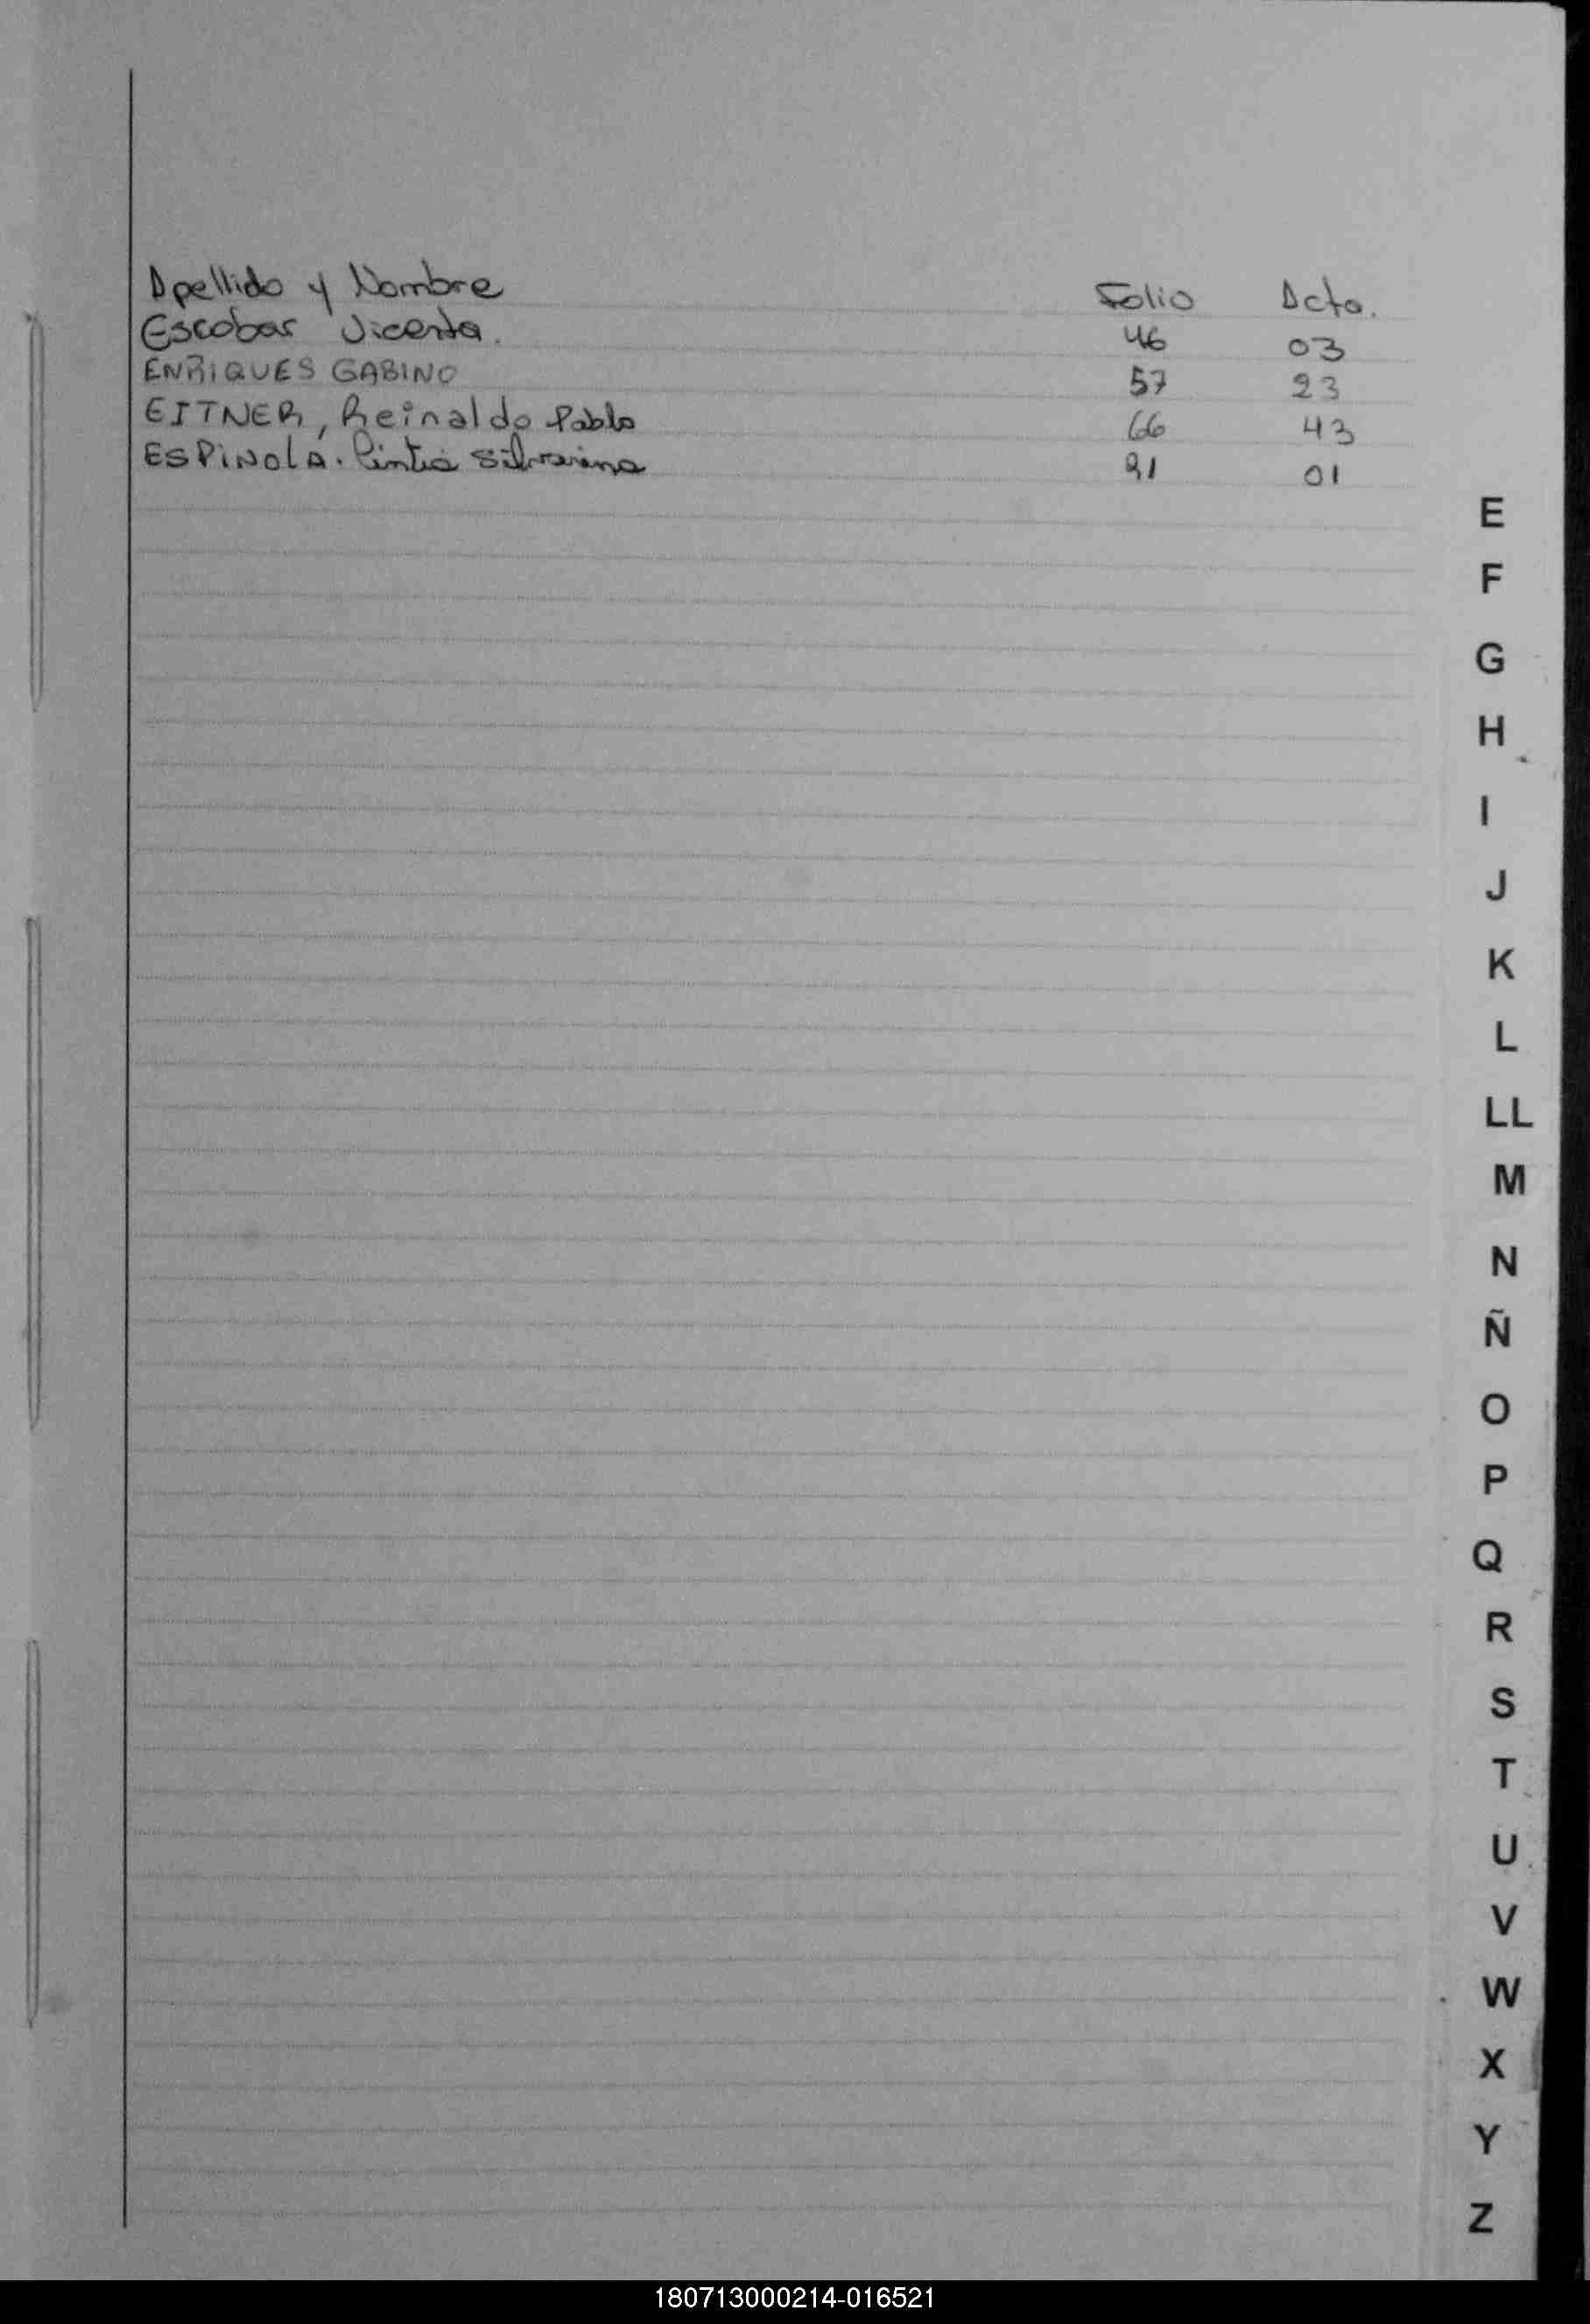 Apellido y Nombre Folio Acta.
Escobar Vicenta. 46 03
ENRIQUES GABINO 57 23
EITNER, Reinaldo Pablo 66 43
ESPINOLA. Cintia Silvanina 91 01
E
F
G
H
I
J
K
L
LL
M
N
Ñ
O
P
Q
R
S
T
U
V
W
X
Y
Z
180713000214-016521